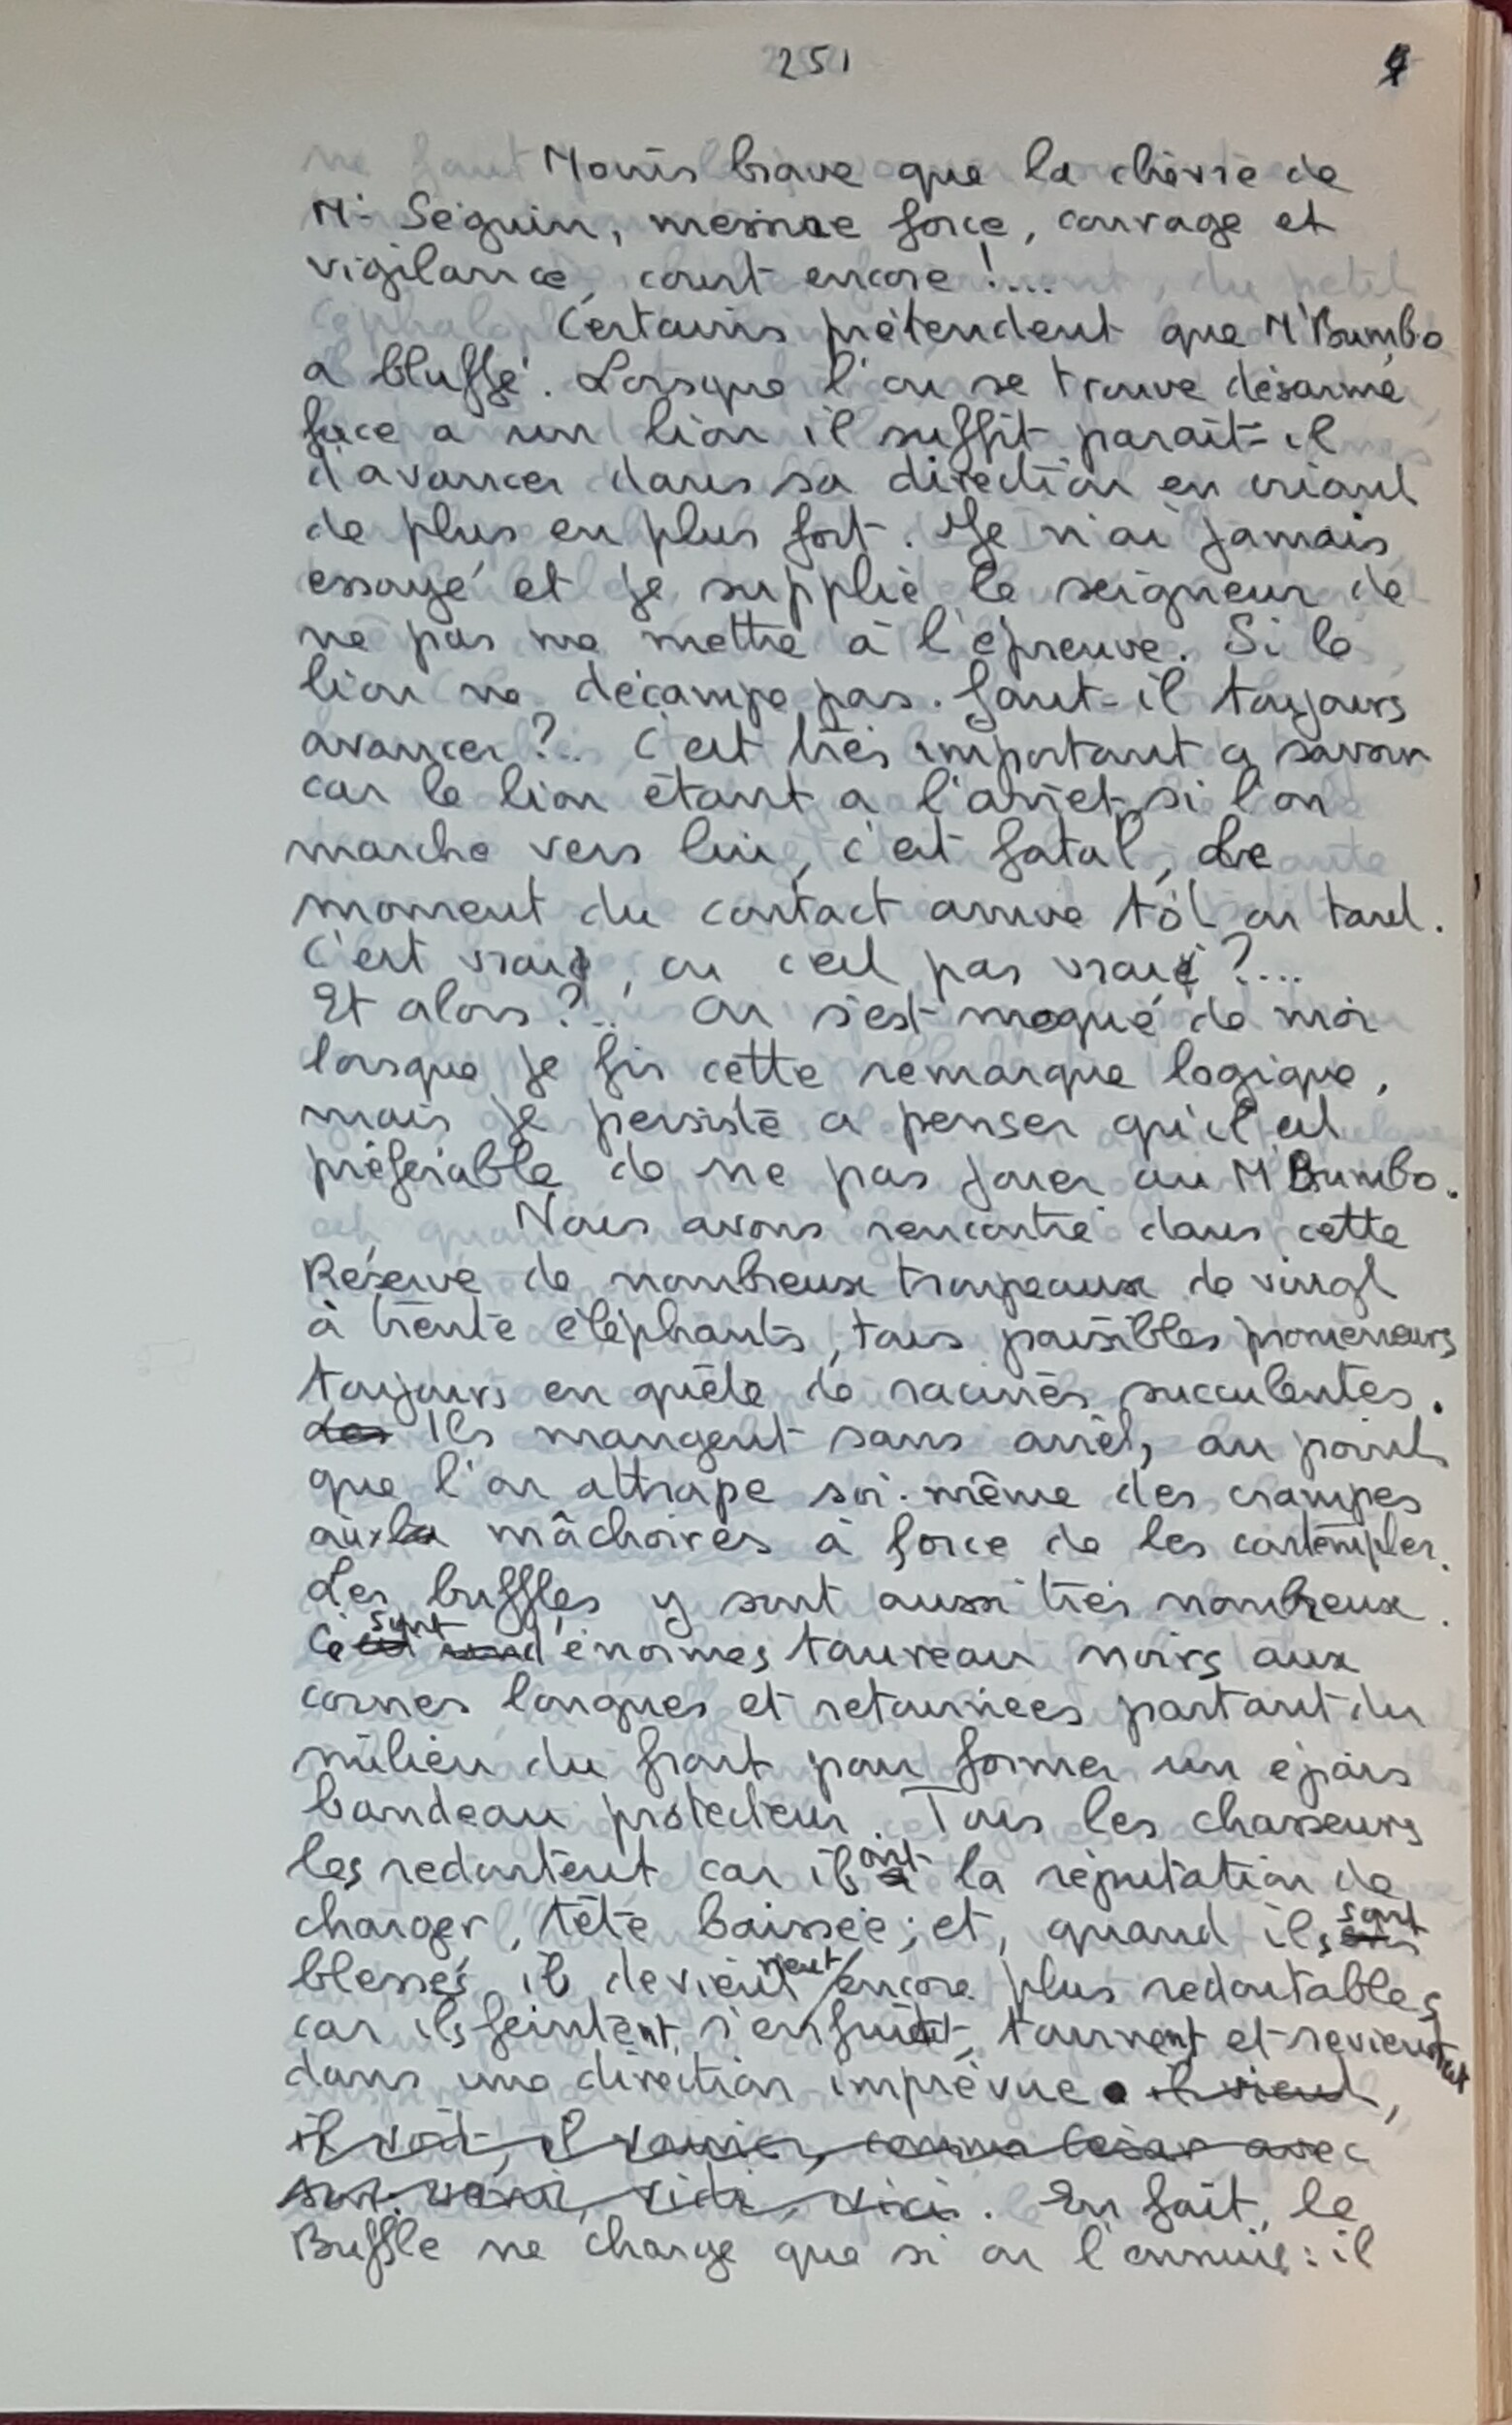 251
Moins brave que la chèvre de
Mr Séguin, messire force, courage et
vigilance, court encore !...
Certains prétendent que M'Bumbo
a bluffé. Lorsque l'on se trouve désarmé
face à un lion il suffit parait-il
d'avancer dans sa direction en criant
de plus en plus fort. Je n'ai jamais
essayé et je supplie le seigneur de
ne pas me mettre à l'épreuve. Si le
lion ne décampe pas. faut-il toujours
avancer ?.. C'est très important a savoir
car le lion étant a l'arrêt, si l'on
marche vers lui, c'est fatal, Le
moment du contact arrive tôt ou tard.
C'est vrai, ou c'est pas vrai ?...
Et alors ?.. On s'est moqué de moi
lorsque je fis cette remarque logique,
mais je persiste a penser qu'il est
préférable de ne pas jouer au M'Bumbo.
Nous avons rencontré dans cette
Réserve de nombreux troupeaux de vingt
à trente éléphants, tous paisibles promeneurs
toujours en quête de racines succulentes.
des Ils mangent sans arrêt, au point
que l'on attrape soi-même des crampes
aux la mâchoires à force de les contempler.
Les buffles y sont aussi très nombreux.
Ce sont d'énormes taureau noirs aux
cornes longues et retournées partant du
milieu du front pour former un épais
bandeau protecteur. Tous les chasseurs
les redoutent car ils ont la réputation de
charger, tête baissée; et, quand ils sont
blessés, ils deviennent encore plus redoutables
car ils feintent, s'enfuient, tournent et reviennent
dans une direction imprévue. il vient,
il voit, il vainc, comme César avec
son veni, vidi, vici. En fait, le
Buffle ne charge que si on l'ennuie : il